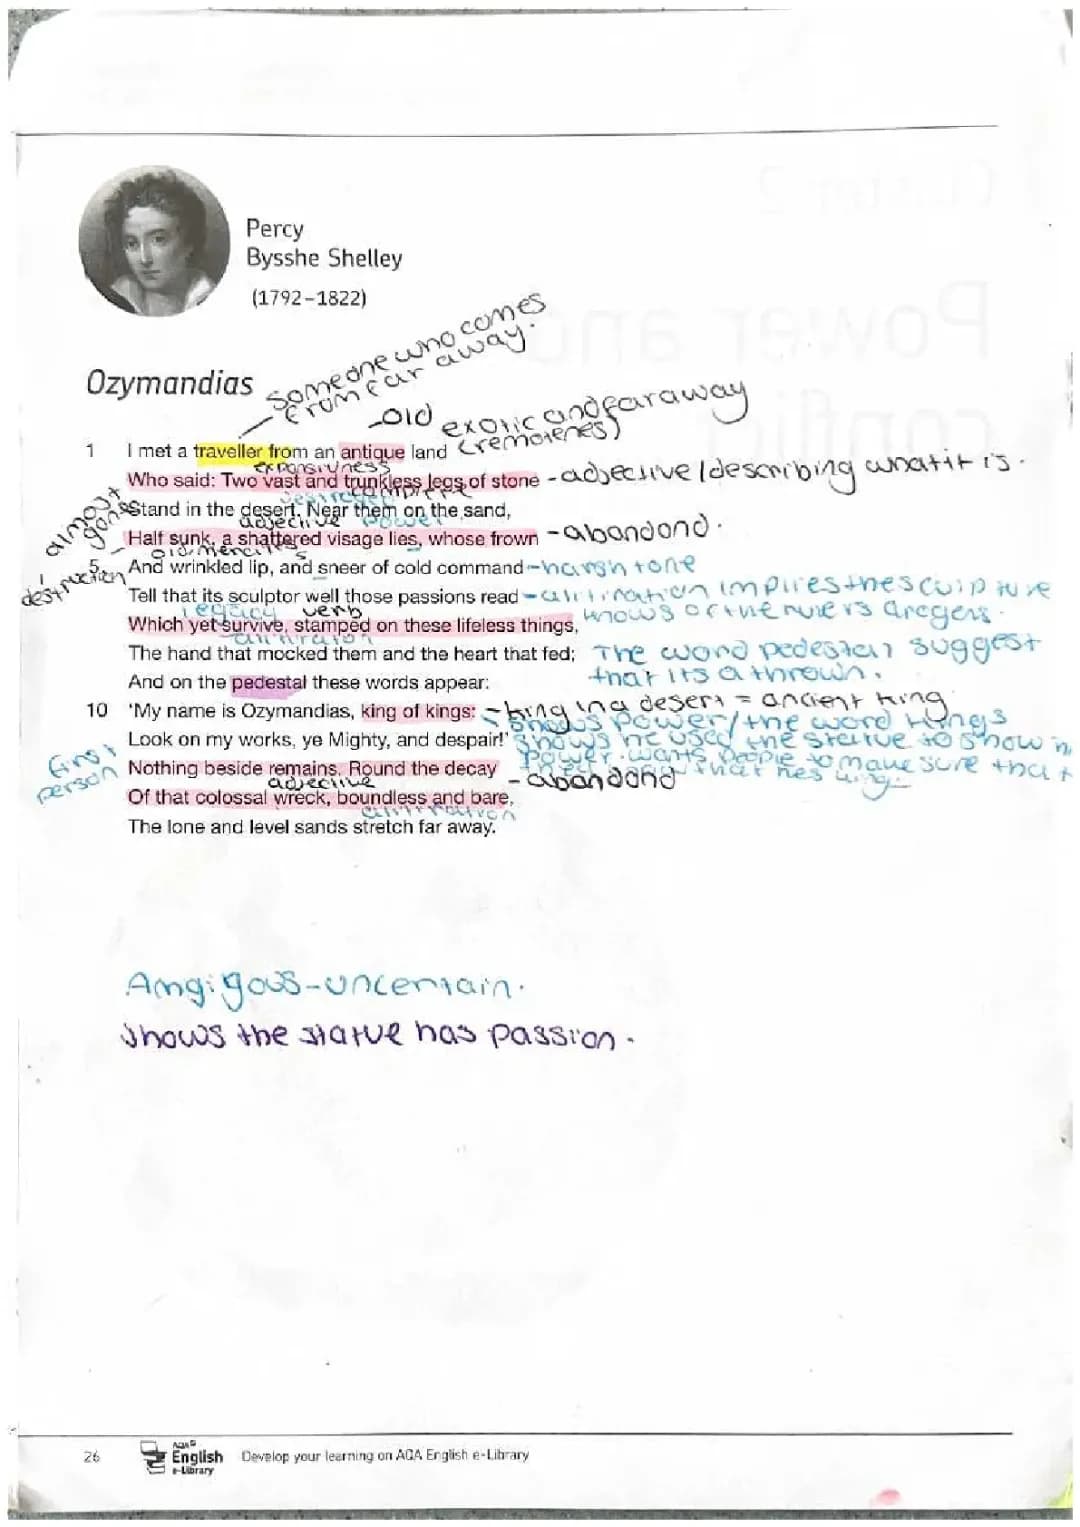 Percy
Bysshe Shelley
(1792–1822)
Someone who comes
from far away.
Ozymandias
-old exotic and faraway
(remotenes)
1 I met a traveller from an antique land
expansivness
Who said: Two vast and trunkless legs of stone - adjective / describing what it is.
almost
gone
Stand in the desert. Near them on the sand,
adjective power
Half sunk, a shattered visage lies, whose frown - abandond.
destruction
5 And wrinkled lip, and sneer of cold command - harsh tone
Tell that its sculptor well those passions read - alitiration impires the sculpture
knows of the rulers aregens.
legacy verb
Which yet survive, stamped on these lifeless things,
The hand that mocked them and the heart that fed; The word pedestal suggest
that its a thrown.
And on the pedestal these words appear:
10 'My name is Ozymandias, king of kings: - king in a desert = ancient king
shows power/the word kings
Look on my works, ye Mighty, and despair!' shows he used the statue to show
power. wants people to make sure that
first
person
Nothing beside remains. Round the decay - abandond
adjective
Of that colossal wreck, boundless and bare,
The lone and level sands stretch far away.
Amgigous-uncertain.
Shows the statue has passion.
26 AQA English e-Library Develop your learning on AQA English e-Library